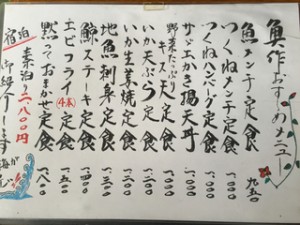 魚作おすすめメニュー
魚メンチ定食 九五〇
つくねメンチ定食 一、〇〇〇
つくねハンバーグ定食 一、〇〇〇
サザエかき揚天丼 一、〇〇〇
野菜たっぷりキス天定食 一、一〇〇
いか天ぷら定食 一、二〇〇
いか生姜焼定食 一、二〇〇
地魚刺身定食 一、三〇〇
鯨ステーキ定食 一、四〇〇
エビフライ(4本)定食 一、五〇〇
黙っておまかせ定食 一、八〇〇
宿泊 素泊り二、八〇〇円
御紹介します